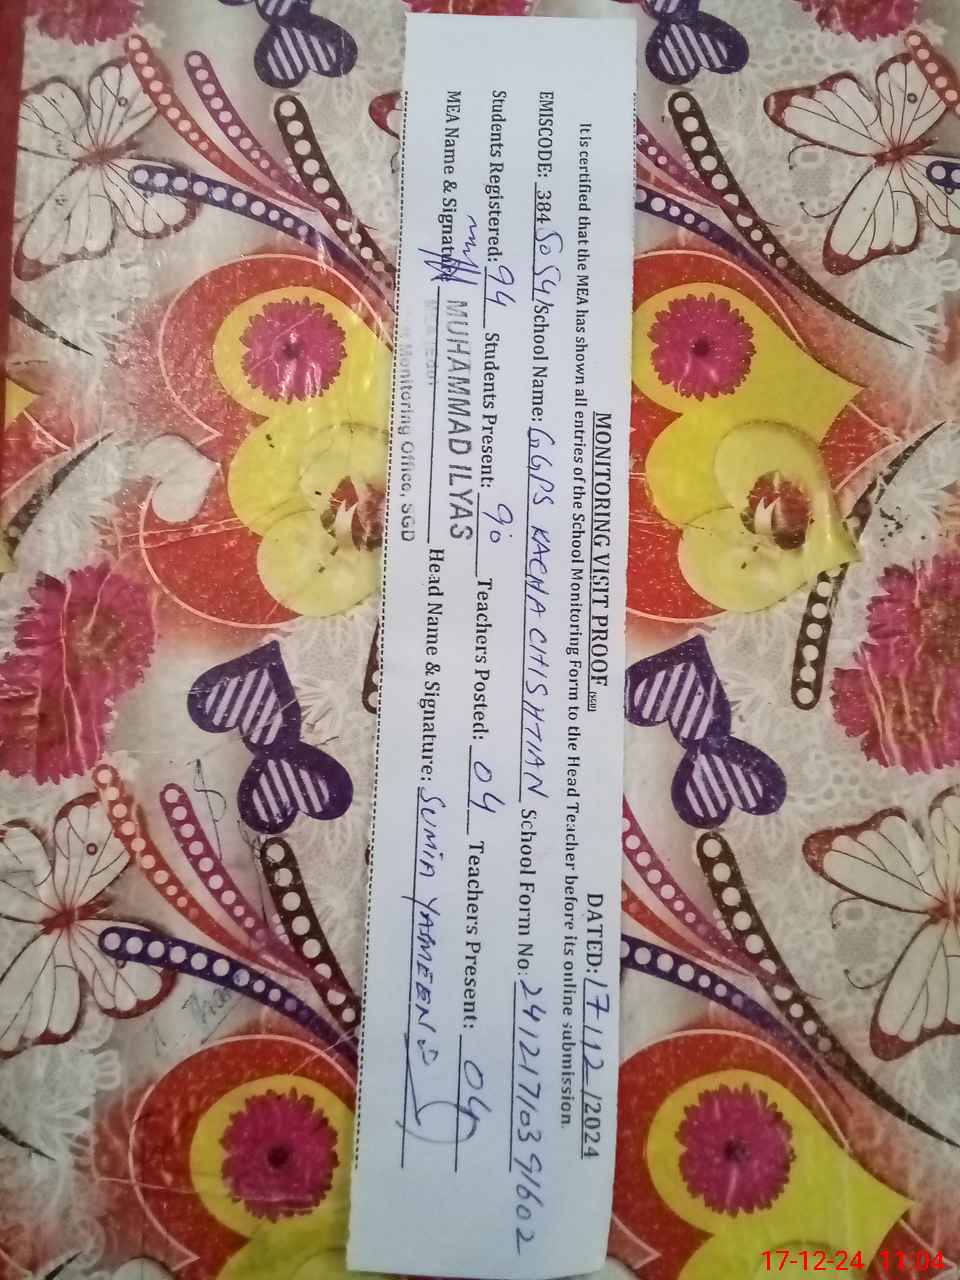 MONITORING VISIT PROOF (SGD) DATED: 17/12/2024
It is certified that the MEA has shown all entries of the School Monitoring Form to the Head Teacher before its online submission.
EMISCODE: 384 50 54/School Name: GGPS KACHA CHISHTIAN School Form No: 241217103 91602
Students Registered: 94 Students Present: 90 Teachers Posted: 04 Teachers Present: 04
MEA Name & Signature MUHAMMAD ILYAS Head Name & Signature: SUMIA YASMEEN
Monitoring Office, SGD
17-12-24 11:04